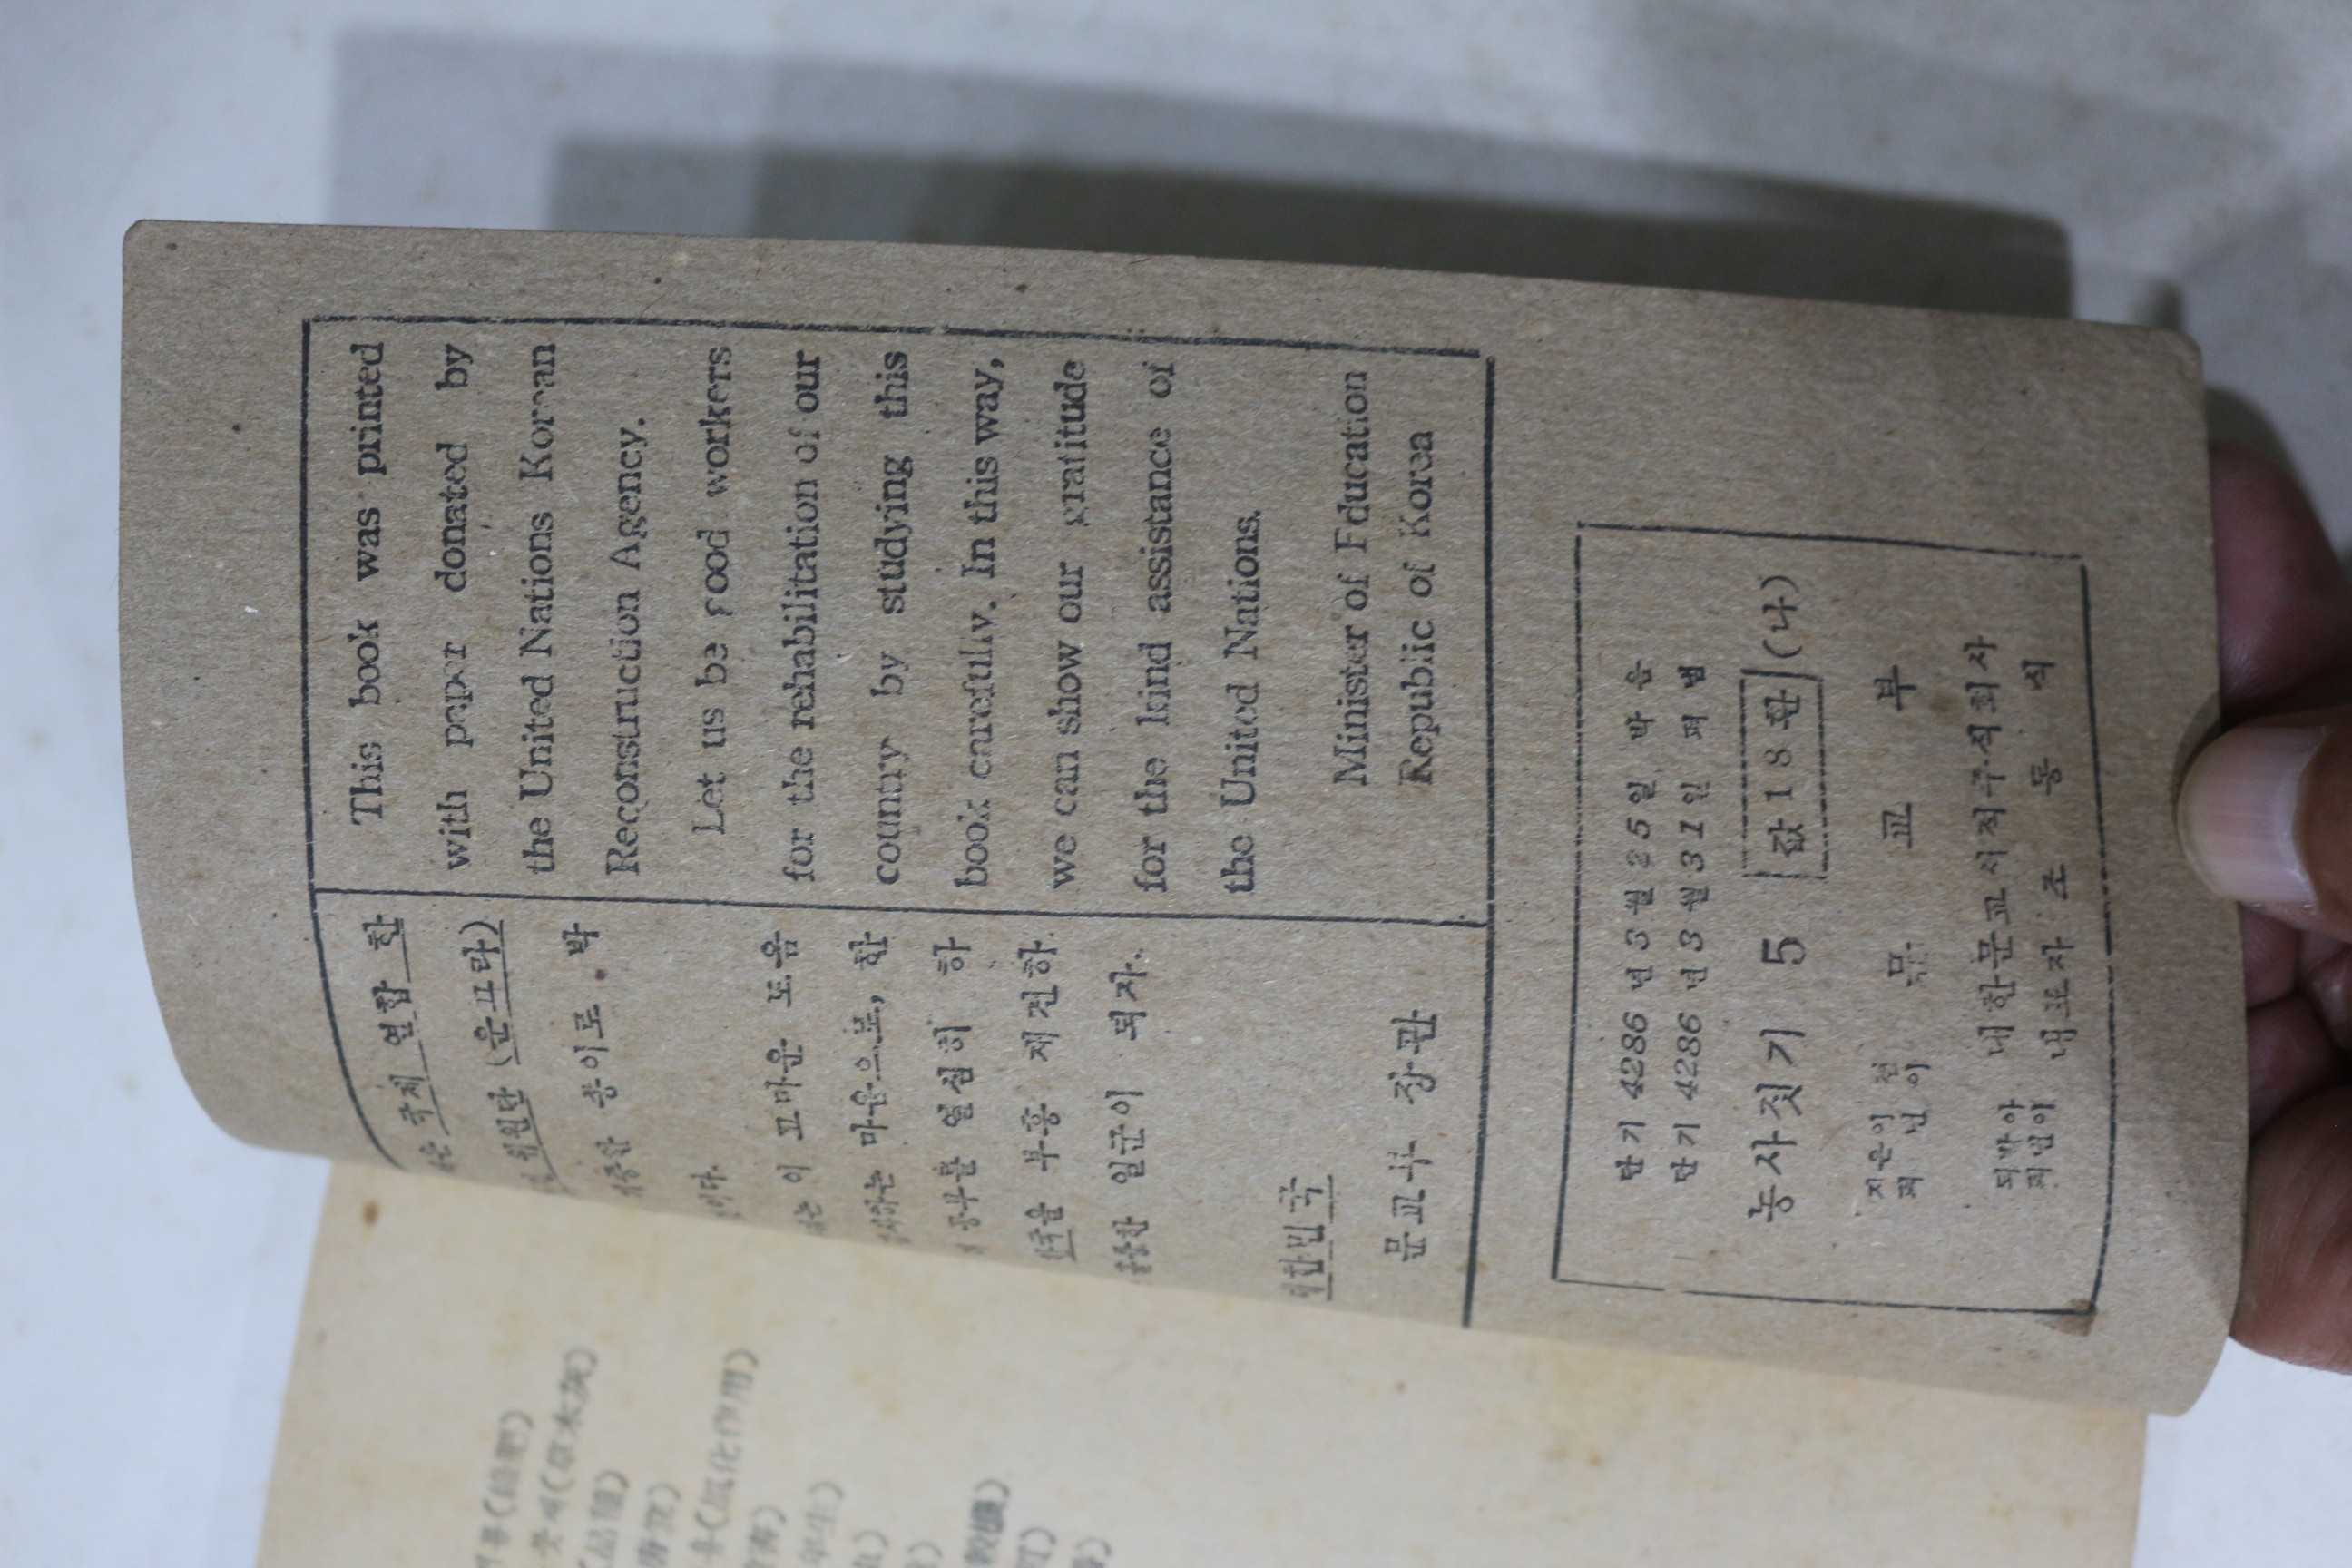 은 국제 연합 한
위원단 (운끄라)
종이로 박
이다.
는 이 고마운 도움
하는 마음으로, 한
공부를 열심히 하
한국을 부흥 재건하
훌륭한 일군이 되자.
대한민국
문교부 장관
This book was printed
with paper donated by
the United Nations Korean
Reconstruction Agency.
Let us be good workers
for the rehabilitation of our
country by studying this
book carefully. In this way,
we can show our gratitude
for the kind assistance of
the United Nations.
Minister of Education
Republic of Korea
단기 4286 년 3 월 25 일 박음
단기 4286 년 3 월 31 일 펴냄
농사짓기 5 값 18 환 (나)
지은이 문교부
대한문교서적주식회사
대표자 조동식
(草木灰)
(風化作用)